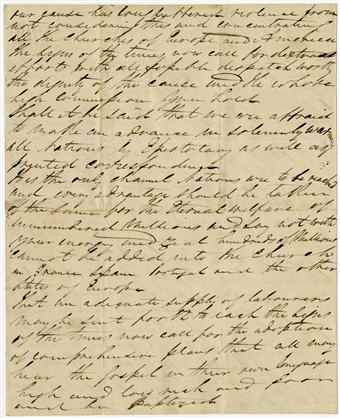 our cause has long suffered violence from
not considering the and concentrating
all the Churches of Europe and America
the signs of the times now call for dexterous
efforts with all possible despatch worthy
the dignity of the cause and He whose
high Commission you hold
Shall it be said that we are afraid
to make an advance in solemnly warning
all Nations in Epistolary as well as
printed correspondence
Yes the only channel Nations are to be reached
and every advantage should be taken
of the same for the Eternal Welfare of
unnumbered Millions and say not with
your energy and zeal hundreds of Millions
cannot be added unto the Church
in France Spain Portugal and the other
states of Europe
But an adequate supply of labourers
may be sent forth to each the signs
of the times now call for the adoption
of comprehensive plans that all may
hear the gospel in their own language
high and low rich and poor
and be Baptized